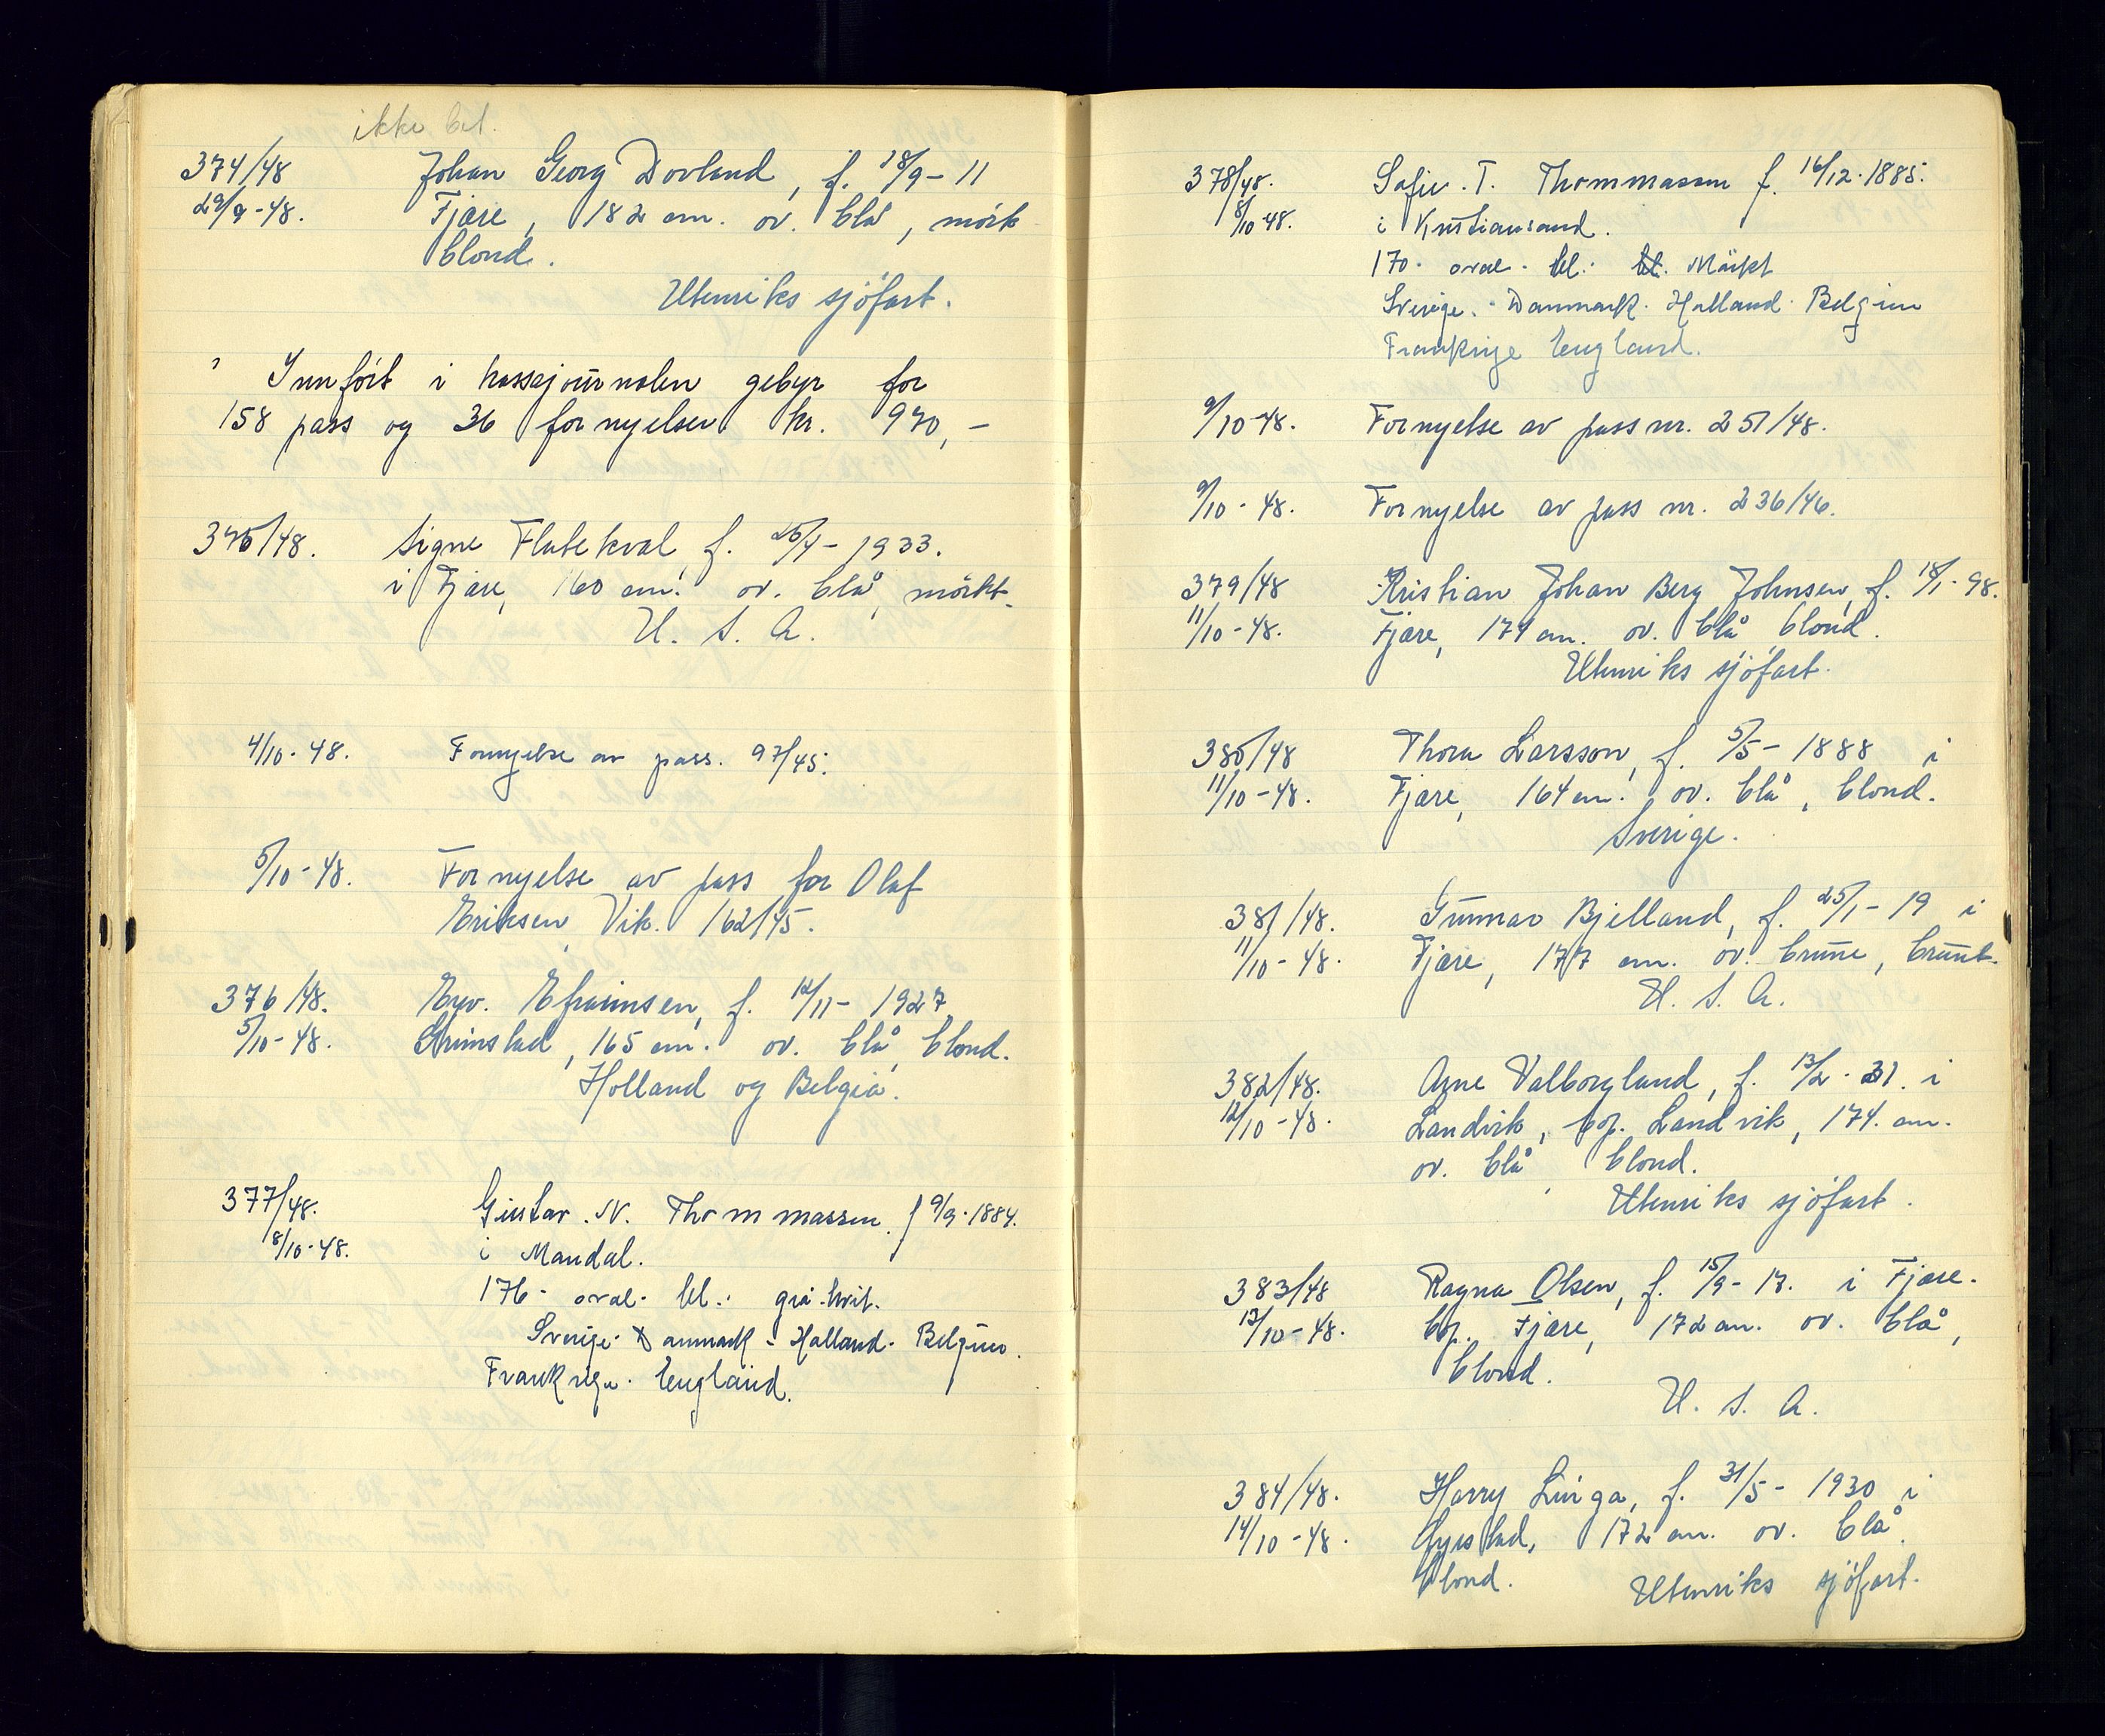 ikke bet.
374/48 Johan Georg Dovland, f. 18/9-11
29/9-48. Fjære, 182 cm. ov. blå, mörk
blond.
Utenriks sjöfart.
Innfört i kassajournalen gebyr for
158 pass og 36 fornyelser kr. 970,-
375/48. Signe Flatekval, f. 1933.
i Fjære, 160 cm. ov. blå, mörkt.
U. S. A.
4/10-48. Fornyelse av pass. 97/45.
5/10-48. Fornyelse av pass for Olaf
Eriksen, Vik. 162/45.
376/48. Efraimsen, f. 12/11-1927
5/10-48. Grimstad, 165 cm. ov. blå, blond.
Holland og Belgia.
377/48. Gustav. N. Thommassen. f 9/9.1884.
8/10-48. i Mandal.
176- oval- bl.: grå-hvit.
Sverige- Danmark- Holland- Belgien.
Frankrige. England.
378/48. Sofie. T. Thommassen f. 16/12.1885.
8/10 48. i Kristiansand.
170. oval- bl.: Mörkt
Sverige.- Danmark. Holland. Belgien
Frankrige England.
9/10-48. Fornyelse av pass nr. 251/48.
9/10-48. Fornyelse av pass nr. 236/46.
379/48 Kristian Johan Berg Johnsen, f. 18/1-98.
11/10-48. Fjære, 174 cm. ov. blå blond.
Utenriks sjöfart.
380/48 Thora Larsson, f. 5/5-1888 i
11/10-48. Fjære, 164 cm. ov. blå, blond.
Sverige.
381/48. Gunnar Bjelland, f. 25/1-19 i
11/10-48. Fjære, 177 cm. ov. brune, brunt.
U. S. A.
382/48. Arne Valborgland, f. 13/2-31. i
12/10-48. Landvik, bop. Landvik, 174. cm.
ov. blå, blond.
Utenriks sjöfart.
383/48 Ragna Olsen, f. 15/9-17. i Fjære.
13/10-48. bop. Fjære, 172 cm. ov. blå,
blond.
U. S. A.
384/48. Harry Linga, f. 31/5-1930 i
14/10-48. 172 cm. ov. blå,
blond. Utenriks sjöfart.